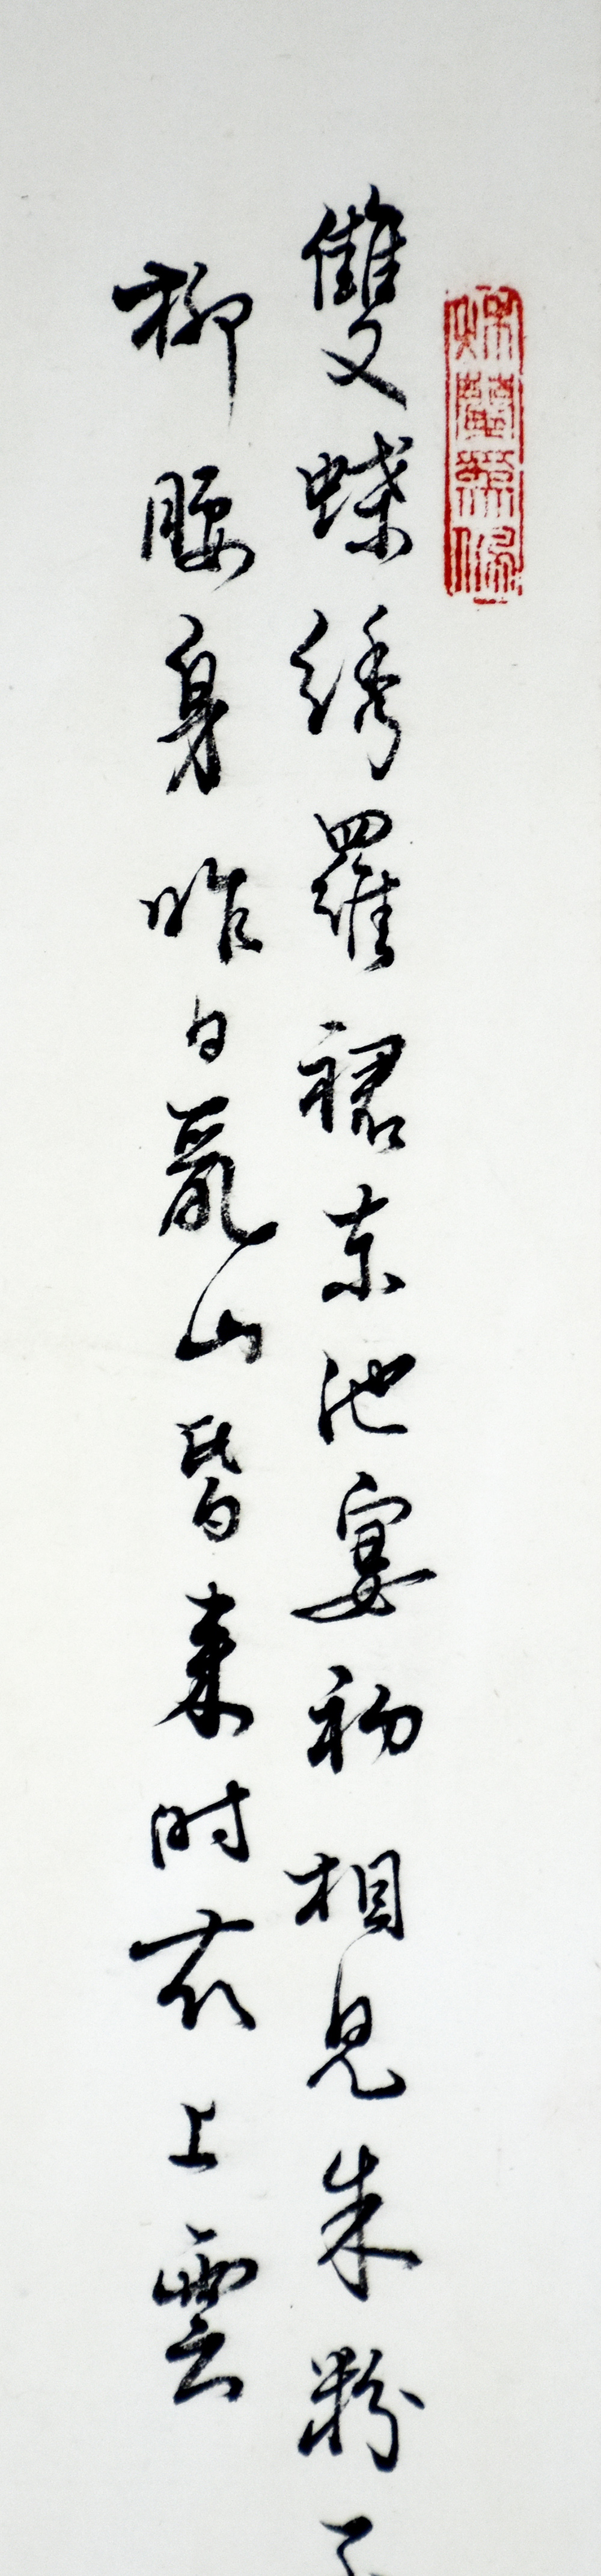 雙蝶綉羅裙東池宴初相見朱粉
柳腰身昨日亂山昏來時衣上雲